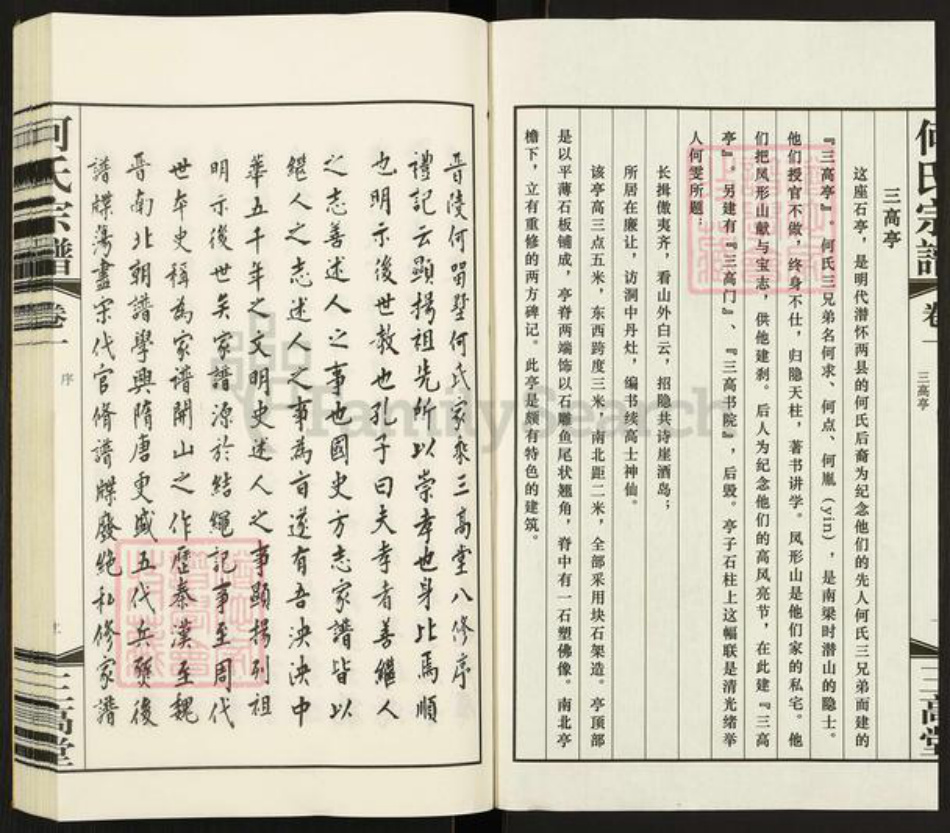 何氏宗譜
卷一
三高亭
三高堂
三高亭
这座石亭，是明代潜怀两县的何氏后裔为纪念他们的先人何氏三兄弟而建的
『三高亭』。何氏三兄弟名何求、何点、何胤（yin），是南梁时潜山的隐士。
他们授官不做，终身不仕，归隐天柱，著书讲学。凤形山是他们家的私宅。他
们把凤形山献与宝志，供他建刹。后人为纪念他们的高风亮节，在此建『三高
亭』。另建有『三高门』、『三高书院』，后毁。亭子石柱上这幅联是清光绪举
人何雯所题：
长揖傲夷齐，看山外白云，招隐共诗崖酒岛；
所居在廉让，访洞中丹灶，编书续高士神仙。
该亭高三点五米，东西跨度三米，南北距二米，全部采用块石架造。亭顶部
是以平薄石板铺成，亭脊两端饰以石雕鱼尾状翘角，脊中有一石塑佛像。南北亭
檐下，立有重修的两方碑记。此亭是颇有特色的建筑。
晋陵何留墅何氏家乘三高堂八修序
禮記云顯揚祖先所以崇孝也身比焉順
也明示後世教也孔子曰夫孝者善繼人
之志善述人之事也國史方志家譜皆以
繼人之志述人之事為旨遂有吾泱泱中
華五千年之文明史述人之事顯揚列祖
明示後世矣家譜源於结繩記事至周代
世本史稱為家譜開山之作歷秦漢至魏
晋南北朝譜學興隋唐更盛五代兵燹後
譜牒蕩盡宋代官脩譜牒廢絶私修家譜
何氏宗譜
卷一
序
三高堂
FamilySearch